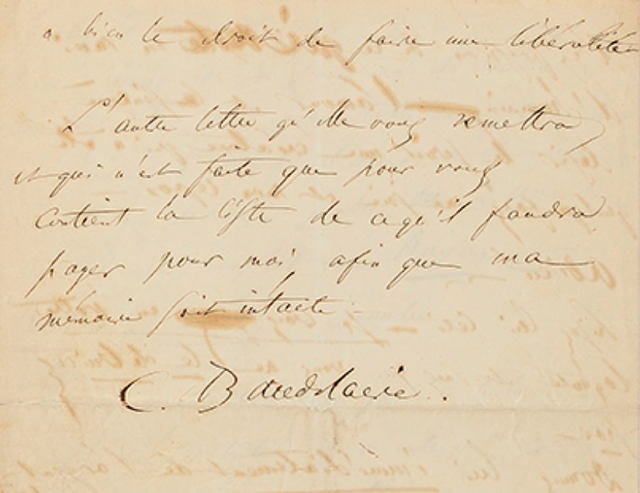 a bien le droit de faire une libéralité.
L'autre lettre qu'elle vous remettra,
et qui n'est faite que pour vous
contient la liste de ce qu'il faudra
payer pour moi afin que ma
mémoire soit intacte.
C. Baudelaire.